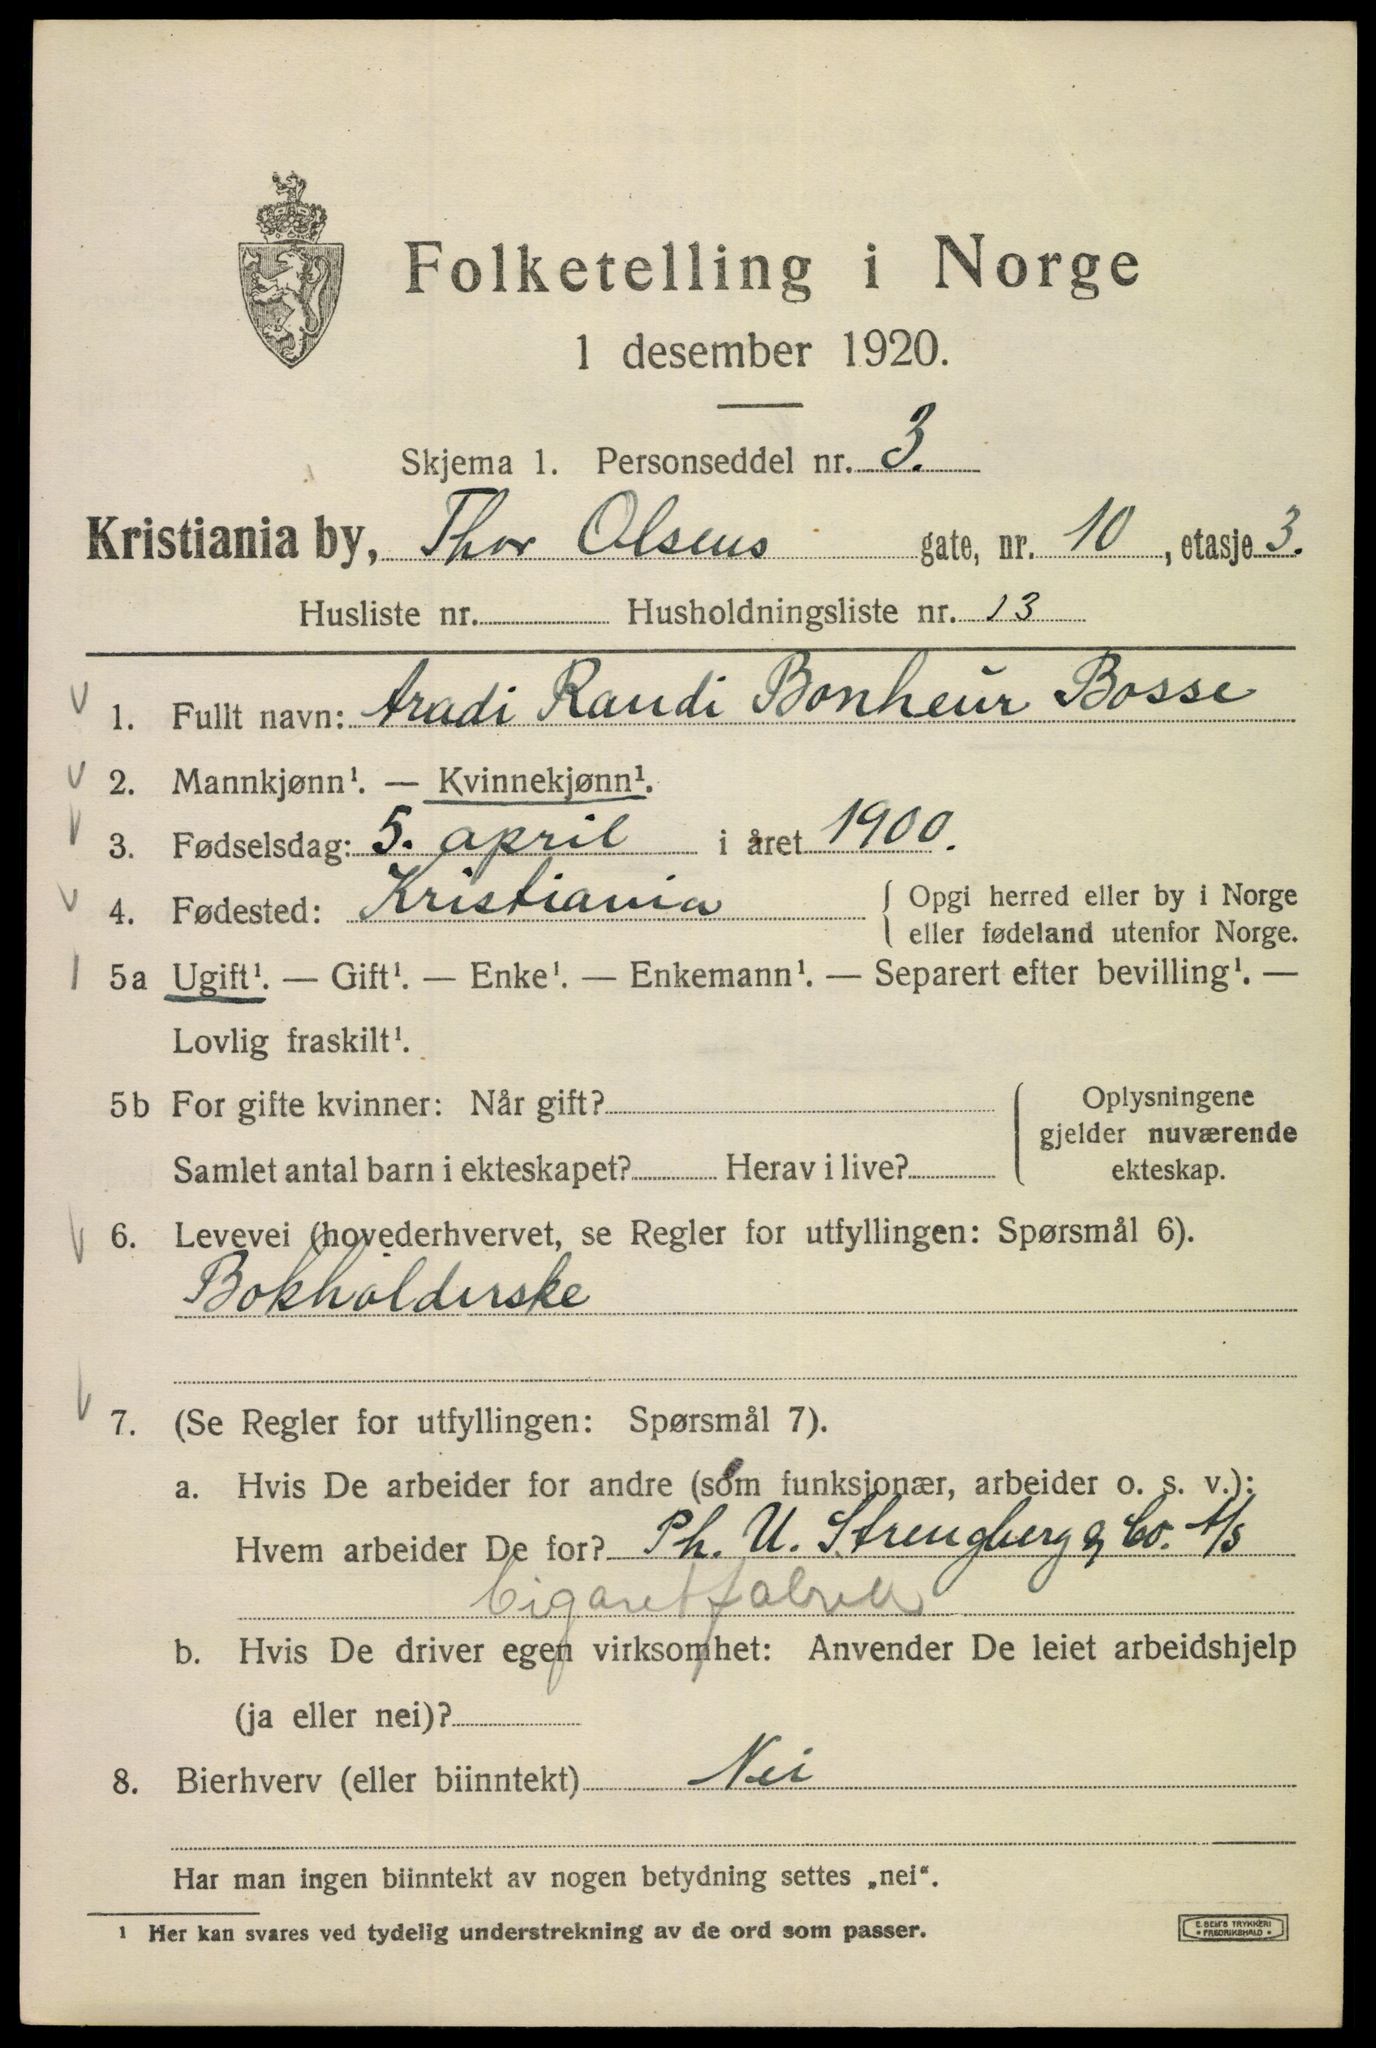 Folketelling i Norge
1 desember 1920.
Skjema 1. Personseddel nr. 3.
Kristiania by, Thor Olsens gate, nr. 10, etasje 3.
Husliste nr. Husholdningsliste nr. 13
1. Fullt navn: Aradi Randi Bonheur Bosse
2. Mannkjønn¹. — Kvinnekjønn¹.
3. Fødselsdag: 5. april i året 1900.
4. Fødested: Kristiania { Opgi herred eller by i Norge
eller fødeland utenfor Norge.
5a Ugift¹. — Gift¹. — Enke¹. — Enkemann¹. — Separert efter bevilling¹. —
Lovlig fraskilt¹.
5b For gifte kvinner: Når gift? Oplysningene
gjelder nuværende
Samlet antal barn i ekteskapet? Herav i live? ekteskap.
6. Levevei (hovederhvervet, se Regler for utfyllingen: Spørsmål 6).
Bokholderske
7. (Se Regler for utfyllingen: Spørsmål 7).
a. Hvis De arbeider for andre (som funksjonær, arbeider o. s. v.):
Hvem arbeider De for? Ph. U. Strengberg & Co. A/S
Cigaretfabrik
b. Hvis De driver egen virksomhet: Anvender De leiet arbeidshjelp
(ja eller nei)?
8. Bierhverv (eller biinntekt) Nei
Har man ingen biinntekt av nogen betydning settes „nei“.
¹ Her kan svares ved tydelig understrekning av de ord som passer.
E. SEM'S TRYKKERI
• FREDRIKSHALD •